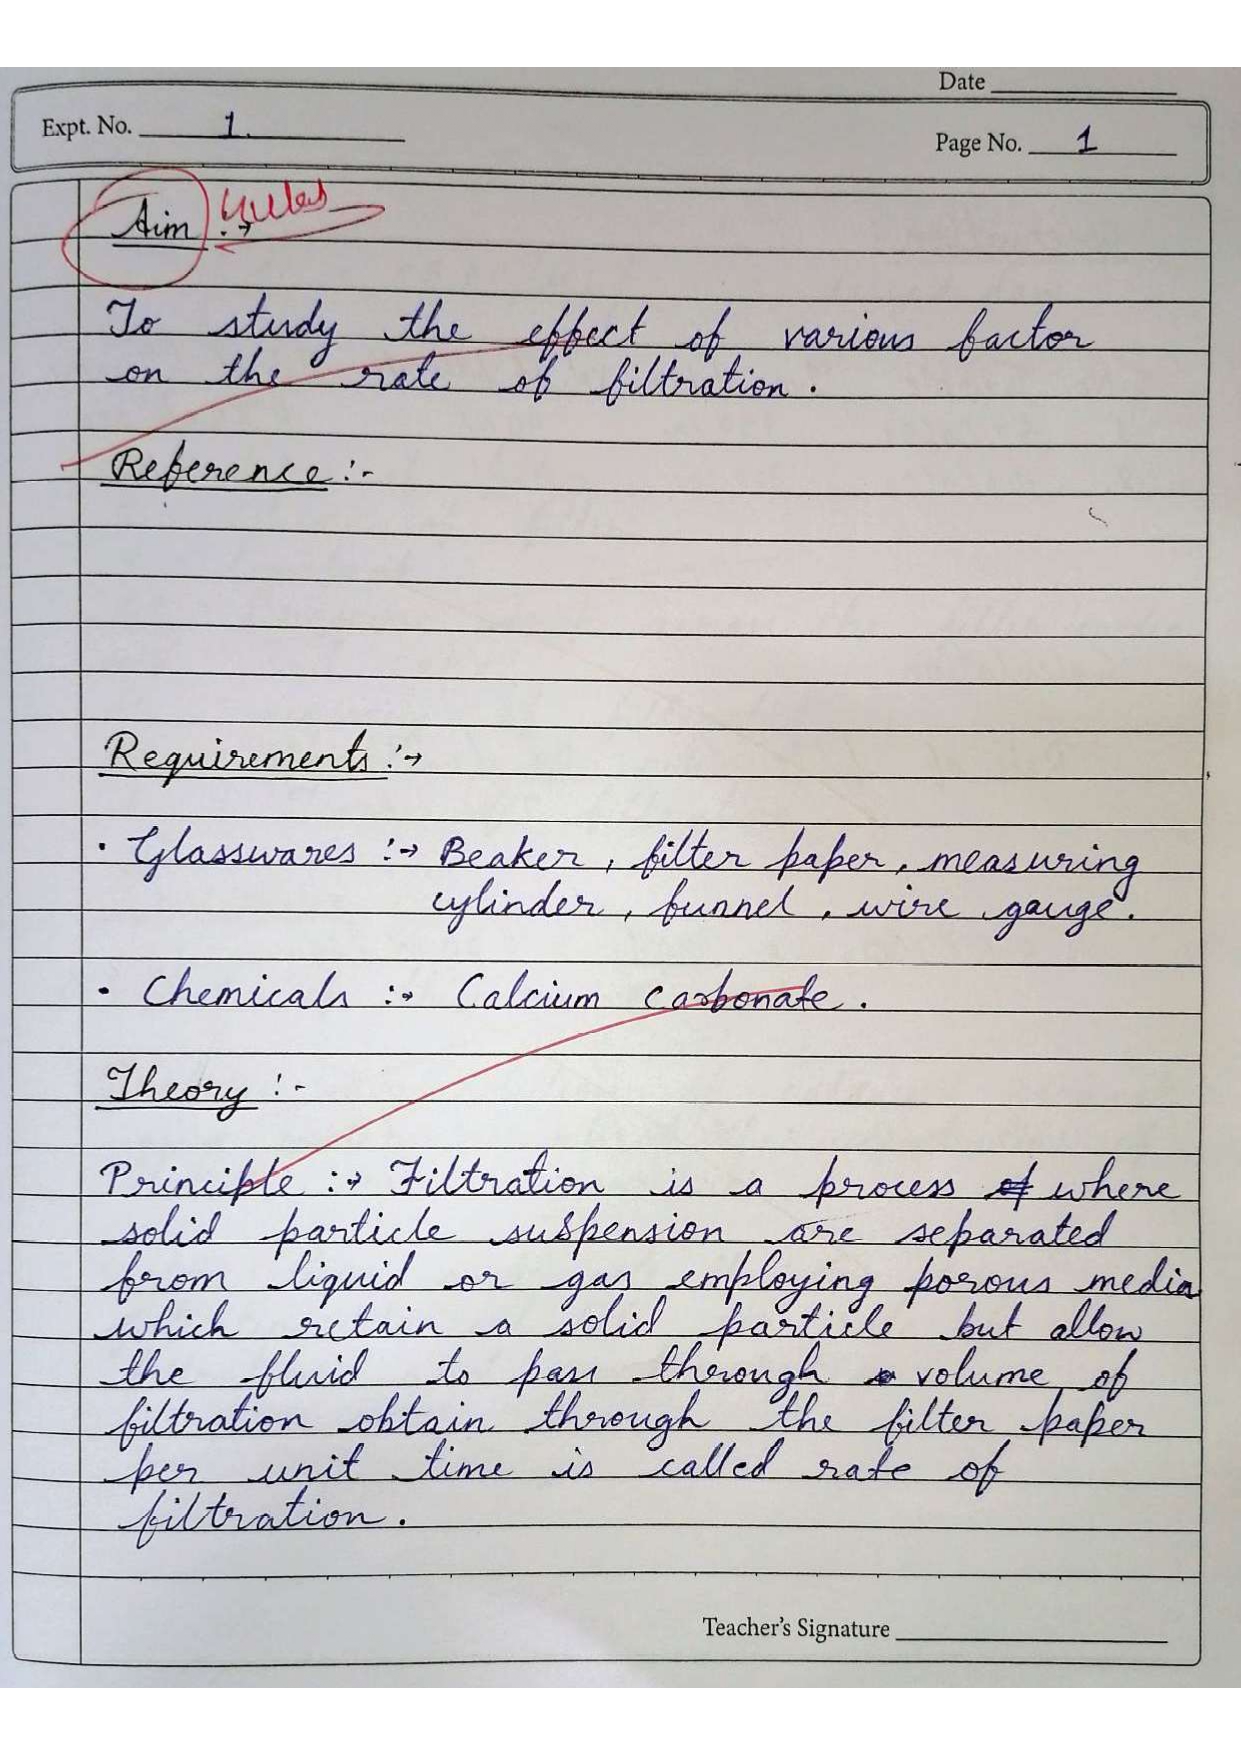 Date
Expt. No. 1.
Page No. 1
Aim :→
To study the effect of various factor
on the rate of filtration.
Reference :-
Requirements :→
• Glasswares :→ Beaker, filter paper, measuring
cylinder, funnel, wire gauge.
• Chemicals :→ Calcium Carbonate.
Theory :-
Principle :→ Filtration is a process of where
solid particle suspension are separated
from liquid or gas employing porous media
which retain a solid particle but allow
the fluid to pass through volume of
filtration obtain through the filter paper
per unit time is called rate of
filtration.
Teacher's Signature